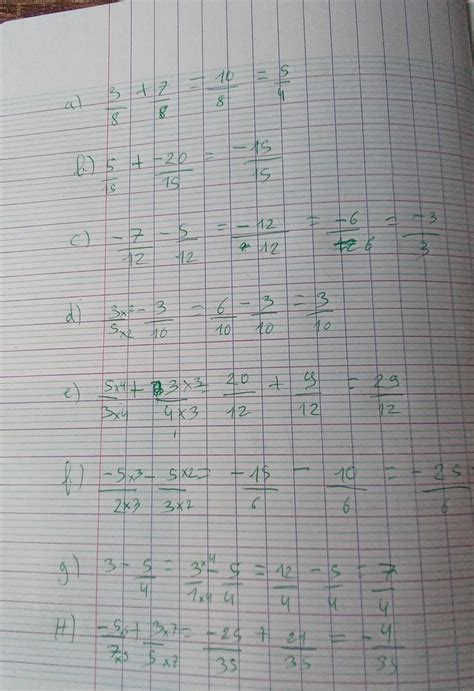 a) 3/8 + 7/8 = 10/8 = 5/4
b) 5/15 + -20/15 = -15/15
c) -7/12 - 5/12 = -12/12 = -6/6 = -3/3
d) 3x2/5x2 - 3/10 = 6/10 - 3/10 = 3/10
e) 5x4/3x4 + 3x3/4x3 = 20/12 + 9/12 = 29/12
f) -5x3/2x3 - 5x2/3x2 = -15/6 - 10/6 = -25/6
g) 3 - 5/4 = 3x4/1x4 - 5/4 = 12/4 - 5/4 = 7/4
H) -5x5/7x5 + 3x7/5x7 = -25/35 + 21/35 = -4/35